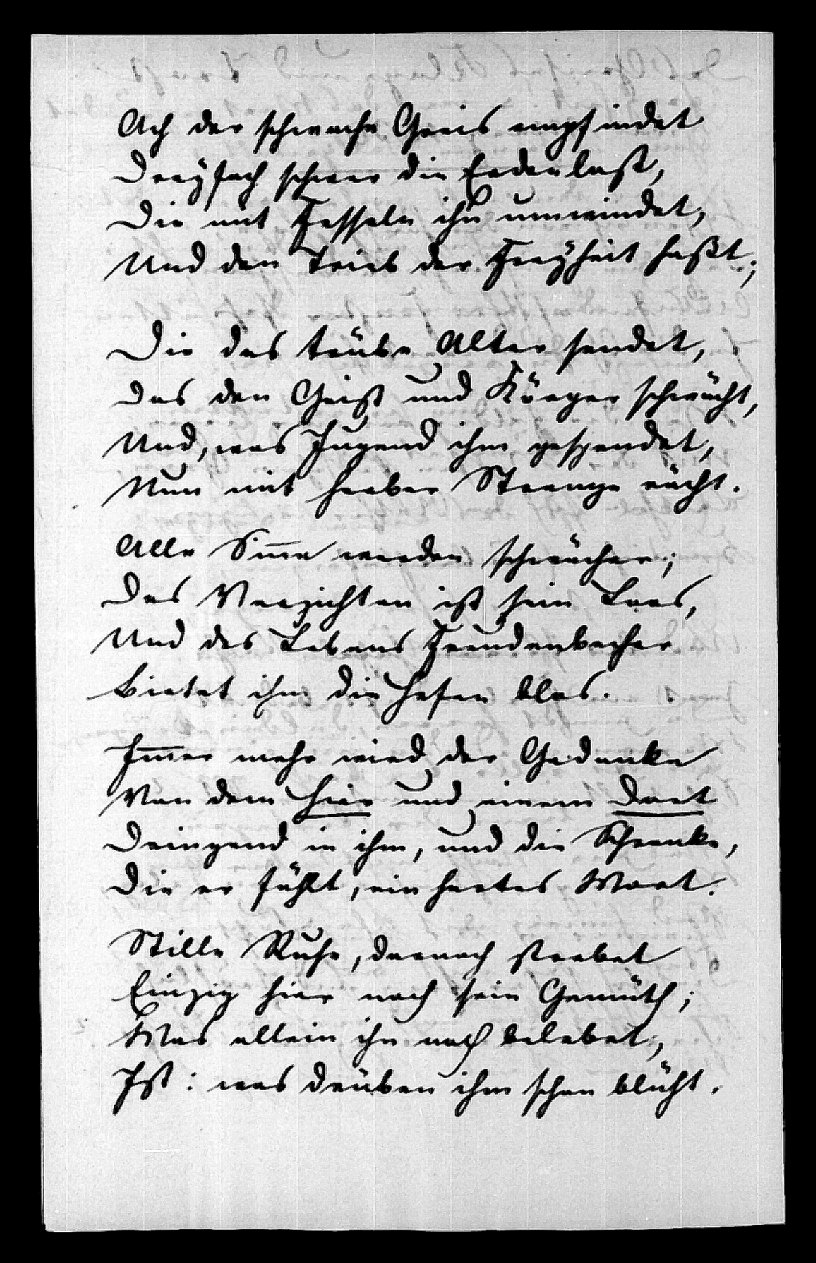 Ach der schwache Greis empfindet
Dreyfach schwer die Erdenlast,
Die mit Fesseln ihn umwindet,
Und den Trieb der Freyheit haßt;
Die das trübe Alter sendet,
Das den Geist und Körper schwächt,
Und, was Jugend ihm gespendet,
Nun mit herber Strenge rächt.
Alle Sinne werden schwächer;
Das Verzichten ist sein Loos,
Und des Lebens Freudenbecher
Bietet ihm die Hefen blos.
Immer mehr wird der Gedanke
Von dem Hier und einem Dort
Dringend in ihm, und die Schranke,
Die er fühlt, ein hartes Wort.
Stille Ruhe, darnach strebet
Einzig hier noch sein Gemüth;
Was allein ihn noch belebet,
Ist: was drüben ihm schon blüht.